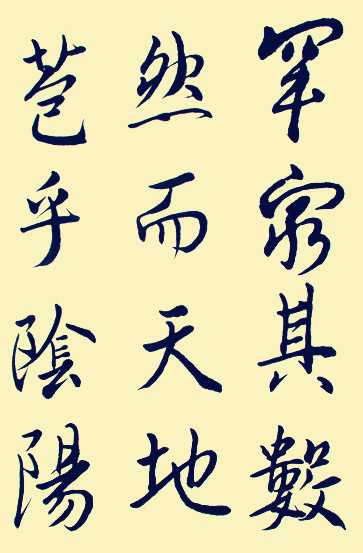 罕窮其數
然而天地
苞乎陰陽